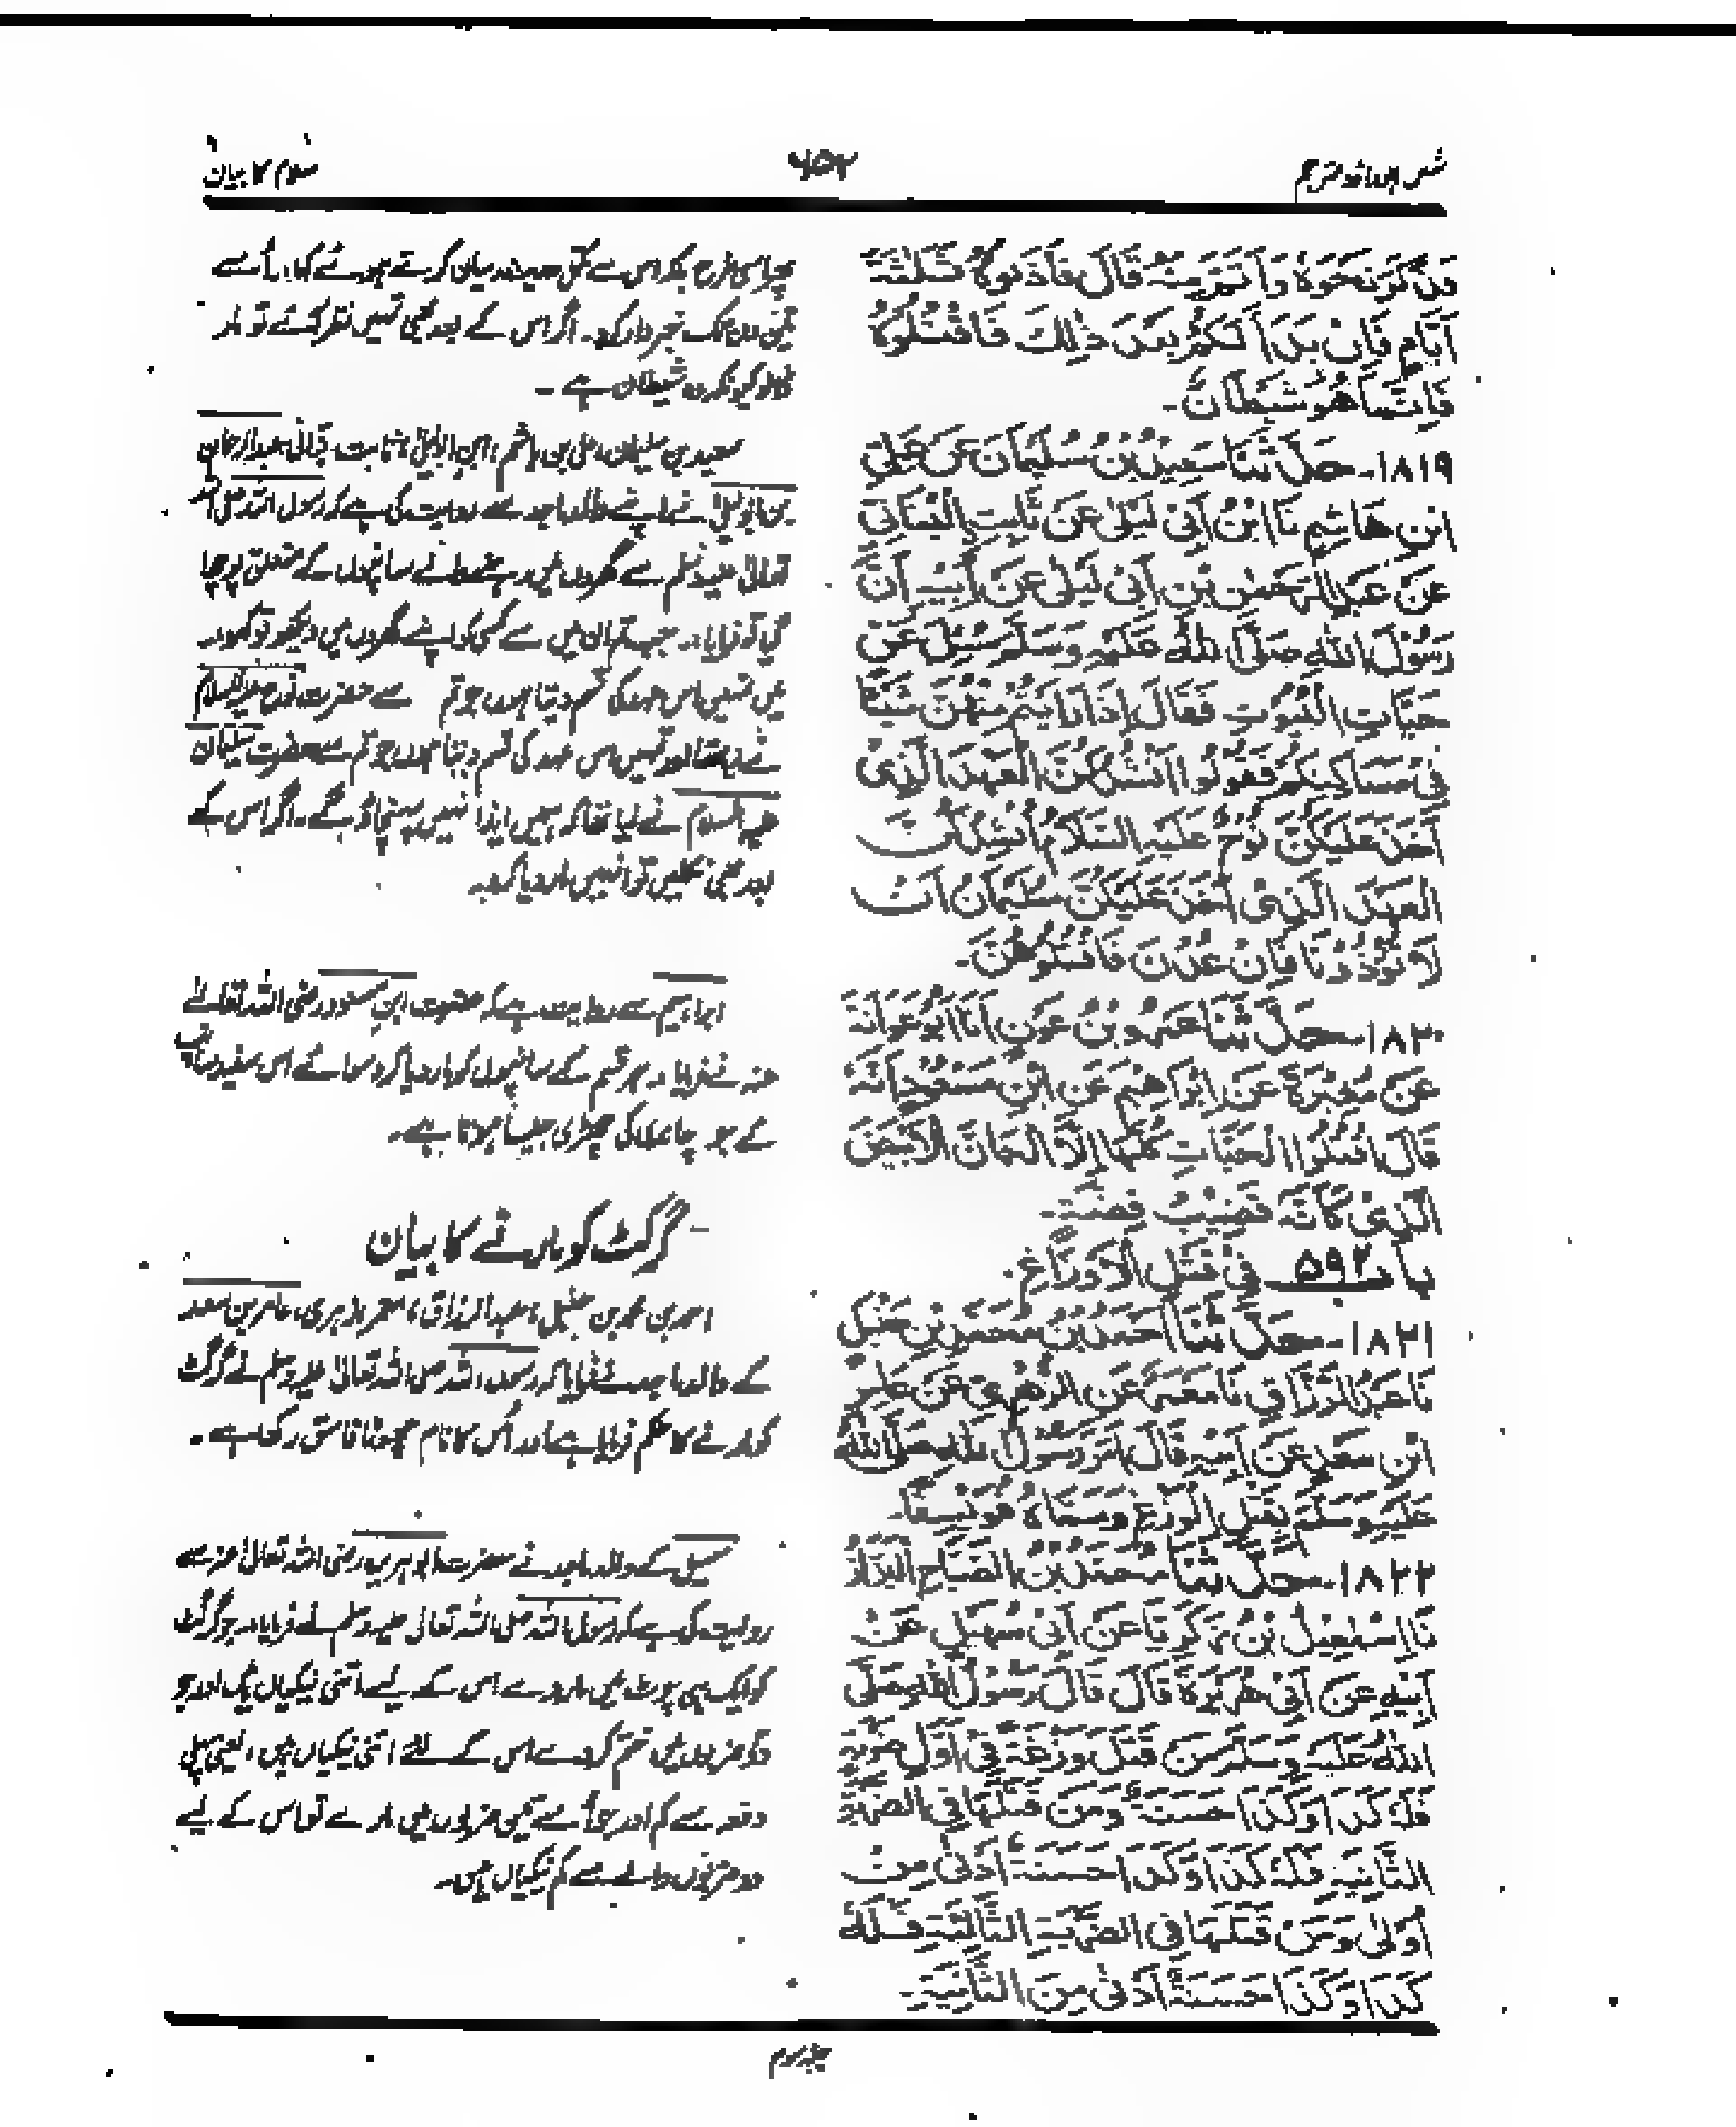 سنن ابوداؤد مترجم
۶۵۲
سلام کا بیان
فَذَكَرَ نَحْوَهُ وَاَتَمَّ مِنْهُ قَالَ فَاٰذِنُوهُ ثَلٰثَةَ
اَيَّامٍ فَاِنْ بَدَا لَكُمْ بَعْدَ ذٰلِكَ فَاقْتُلُوهُ
فَاِنَّمَا هُوَ شَيْطَانٌ۔
۱۸۱۹۔ حَدَّثَنَا سَعِيْدُ بْنُ سُلَيْمَانَ عَنْ عَلِيِّ
ابْنِ هَاشِمٍ نَا ابْنُ اَبِيْ لَيْلٰى عَنْ ثَابِتٍ الْبُنَانِيِّ
عَنْ عَبْدِ الرَّحْمٰنِ بْنِ اَبِيْ لَيْلٰى عَنْ اَبِيْهِ اَنَّ
رَسُوْلَ اللّٰهِ صَلَّى اللّٰهُ عَلَيْهِ وَسَلَّمَ سُئِلَ عَنْ
حَيَّاتِ الْبُيُوْتِ فَقَالَ اِذَا رَاَيْتُمْ مِنْهُنَّ شَيْئًا
فِيْ مَسَاكِنِكُمْ فَقُوْلُوْا اَنْشُدُكُنَّ الْعَهْدَ الَّذِيْ
اَخَذَ عَلَيْكُنَّ نُوْحٌ عَلَيْهِ السَّلَامُ اَنْشُدُكُنَّ
الْعَهْدَ الَّذِيْ اَخَذَ عَلَيْكُنَّ سُلَيْمَانُ اَنْ
لَا تُؤْذُوْنَا فَاِنْ عُدْنَ فَاقْتُلُوْهُنَّ۔
۱۸۲۰۔ حَدَّثَنَا عَمْرُو بْنُ عَوْنٍ اَنَا اَبُوْ عَوَانَةَ
عَنْ مُغِيْرَةَ عَنْ اِبْرَاهِيْمَ عَنِ ابْنِ مَسْعُوْدٍ اَنَّهُ
قَالَ اقْتُلُوا الْحَيَّاتِ كُلَّهَا اِلَّا الْجَانَّ الْاَبْيَضَ
الَّذِيْ كَاَنَّهُ قَضِيْبُ فِضَّةٍ۔
باب ۵۹۲ فِيْ قَتْلِ الْاَوْزَاغِ۔
۱۸۲۱۔ حَدَّثَنَا اَحْمَدُ بْنُ مُحَمَّدِ بْنِ حَنْبَلٍ
نَا عَبْدُ الرَّزَّاقِ نَا مَعْمَرٌ عَنِ الزُّهْرِيِّ عَنْ عَامِرِ
ابْنِ سَعْدٍ عَنْ اَبِيْهِ قَالَ اَمَرَ رَسُوْلُ اللّٰهِ صَلَّى اللّٰهُ
عَلَيْهِ وَسَلَّمَ بِقَتْلِ الْوَزَغِ وَسَمَّاهُ فُوَيْسِقًا۔
۱۸۲۲۔ حَدَّثَنَا مُحَمَّدُ بْنُ الصَّبَّاحِ الْبَزَّازُ
نَا اِسْمٰعِيْلُ بْنُ زَكَرِيَّا عَنْ سُهَيْلٍ عَنْ
اَبِيْهِ عَنْ اَبِيْ هُرَيْرَةَ قَالَ قَالَ رَسُوْلُ اللّٰهِ صَلَّى
اللّٰهُ عَلَيْهِ وَسَلَّمَ مَنْ قَتَلَ وَزَغَةً فِيْ اَوَّلِ ضَرْبَةٍ
فَلَهُ كَذَا وَكَذَا حَسَنَةً وَمَنْ قَتَلَهَا فِي الضَّرْبَةِ
الثَّانِيَةِ فَلَهُ كَذَا وَكَذَا حَسَنَةً اَدْنٰى مِنْ
اَوْلٰى وَمَنْ قَتَلَهَا فِي الضَّرْبَةِ الثَّالِثَةِ فَلَهُ
كَذَا وَكَذَا حَسَنَةً اَدْنٰى مِنَ الثَّانِيَةِ۔
پھر اسی طرح مگر اس سے مکمل حدیث بیان کرتے ہوئے کہا: اُسے
تین دن تک خبردار کرو۔ اگر اس کے بعد بھی تمہیں نظر آئے تو مار
ڈالو کیونکہ وہ شیطان ہے۔
سعید بن سلیمان، علی بن ہاشم، ابن ابی لیلیٰ، ثابت بنانی، عبدالرحمٰن
بن ابو لیلیٰ نے اپنے والد ماجد سے روایت کی ہے کہ رسول اللہ صلی اللہ
تعالیٰ علیہ وسلم سے گھروں میں رہنے والے سانپوں کے متعلق پوچھا
گیا تو فرمایا: جب تم ان میں سے کسی کو اپنے گھروں میں دیکھو تو کہو:
میں تمہیں اس عہد کی قسم دیتا ہوں جو تم سے حضرت نوح علیہ السلام
نے لیا تھا اور تمہیں اس عہد کی قسم دیتا ہوں جو تم سے حضرت سلیمان
علیہ السلام نے لیا تھا کہ ہمیں ایذا نہیں پہنچاؤ گے۔ اگر اس کے
بعد بھی نکلیں تو انہیں مار دیا کرو۔
ابراہیم سے روایت ہے کہ حضرت ابن مسعود رضی اللہ تعالےٰ
عنہ نے فرمایا: ہر قسم کے سانپوں کو مار دیا کرو سوائے اس سفید سانپ
کے جو چاندی کی چھڑی جیسا ہوتا ہے۔
گرگٹ کو مارنے کا بیان
احمد بن محمد بن حنبل، عبدالرزاق، معمر، زہری، عامر بن سعد
کے والد ماجد نے فرمایا کہ رسول اللہ صلی اللہ تعالیٰ علیہ وسلم نے گرگٹ
کو مارنے کا حکم فرمایا ہے اور اُس کا نام چھوٹا فاسق رکھا ہے۔
سہیل کے والد ماجد نے حضرت ابو ہریرہ رضی اللہ تعالیٰ عنہ سے
روایت کی ہے کہ رسول اللہ صلی اللہ تعالیٰ علیہ وسلم نے فرمایا: جو گرگٹ
کو ایک ہی چوٹ میں مار دے اس کے لیے اتنی نیکیاں ہیں اور جو
دو ضربوں میں ختم کر دے اس کے لئے اتنی نیکیاں ہیں، یعنی پہلی
دفعہ سے کم اور جو اُسے تین ضربوں میں مارے تو اس کے لیے
دو ضربوں والے سے کم نیکیاں ہیں۔
جلد سوم